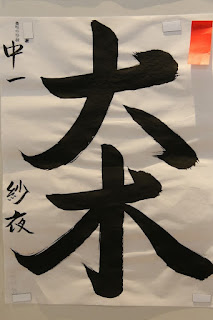 大木
中一 紗夜